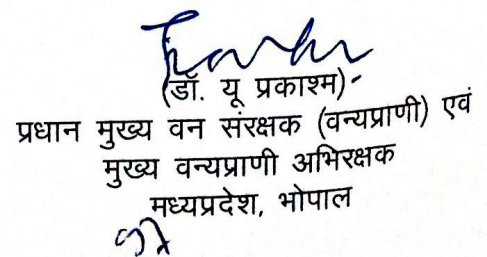 (डॉ. यू प्रकाशम)
प्रधान मुख्य वन संरक्षक (वन्यप्राणी) एवं
मुख्य वन्यप्राणी अभिरक्षक
मध्यप्रदेश, भोपाल